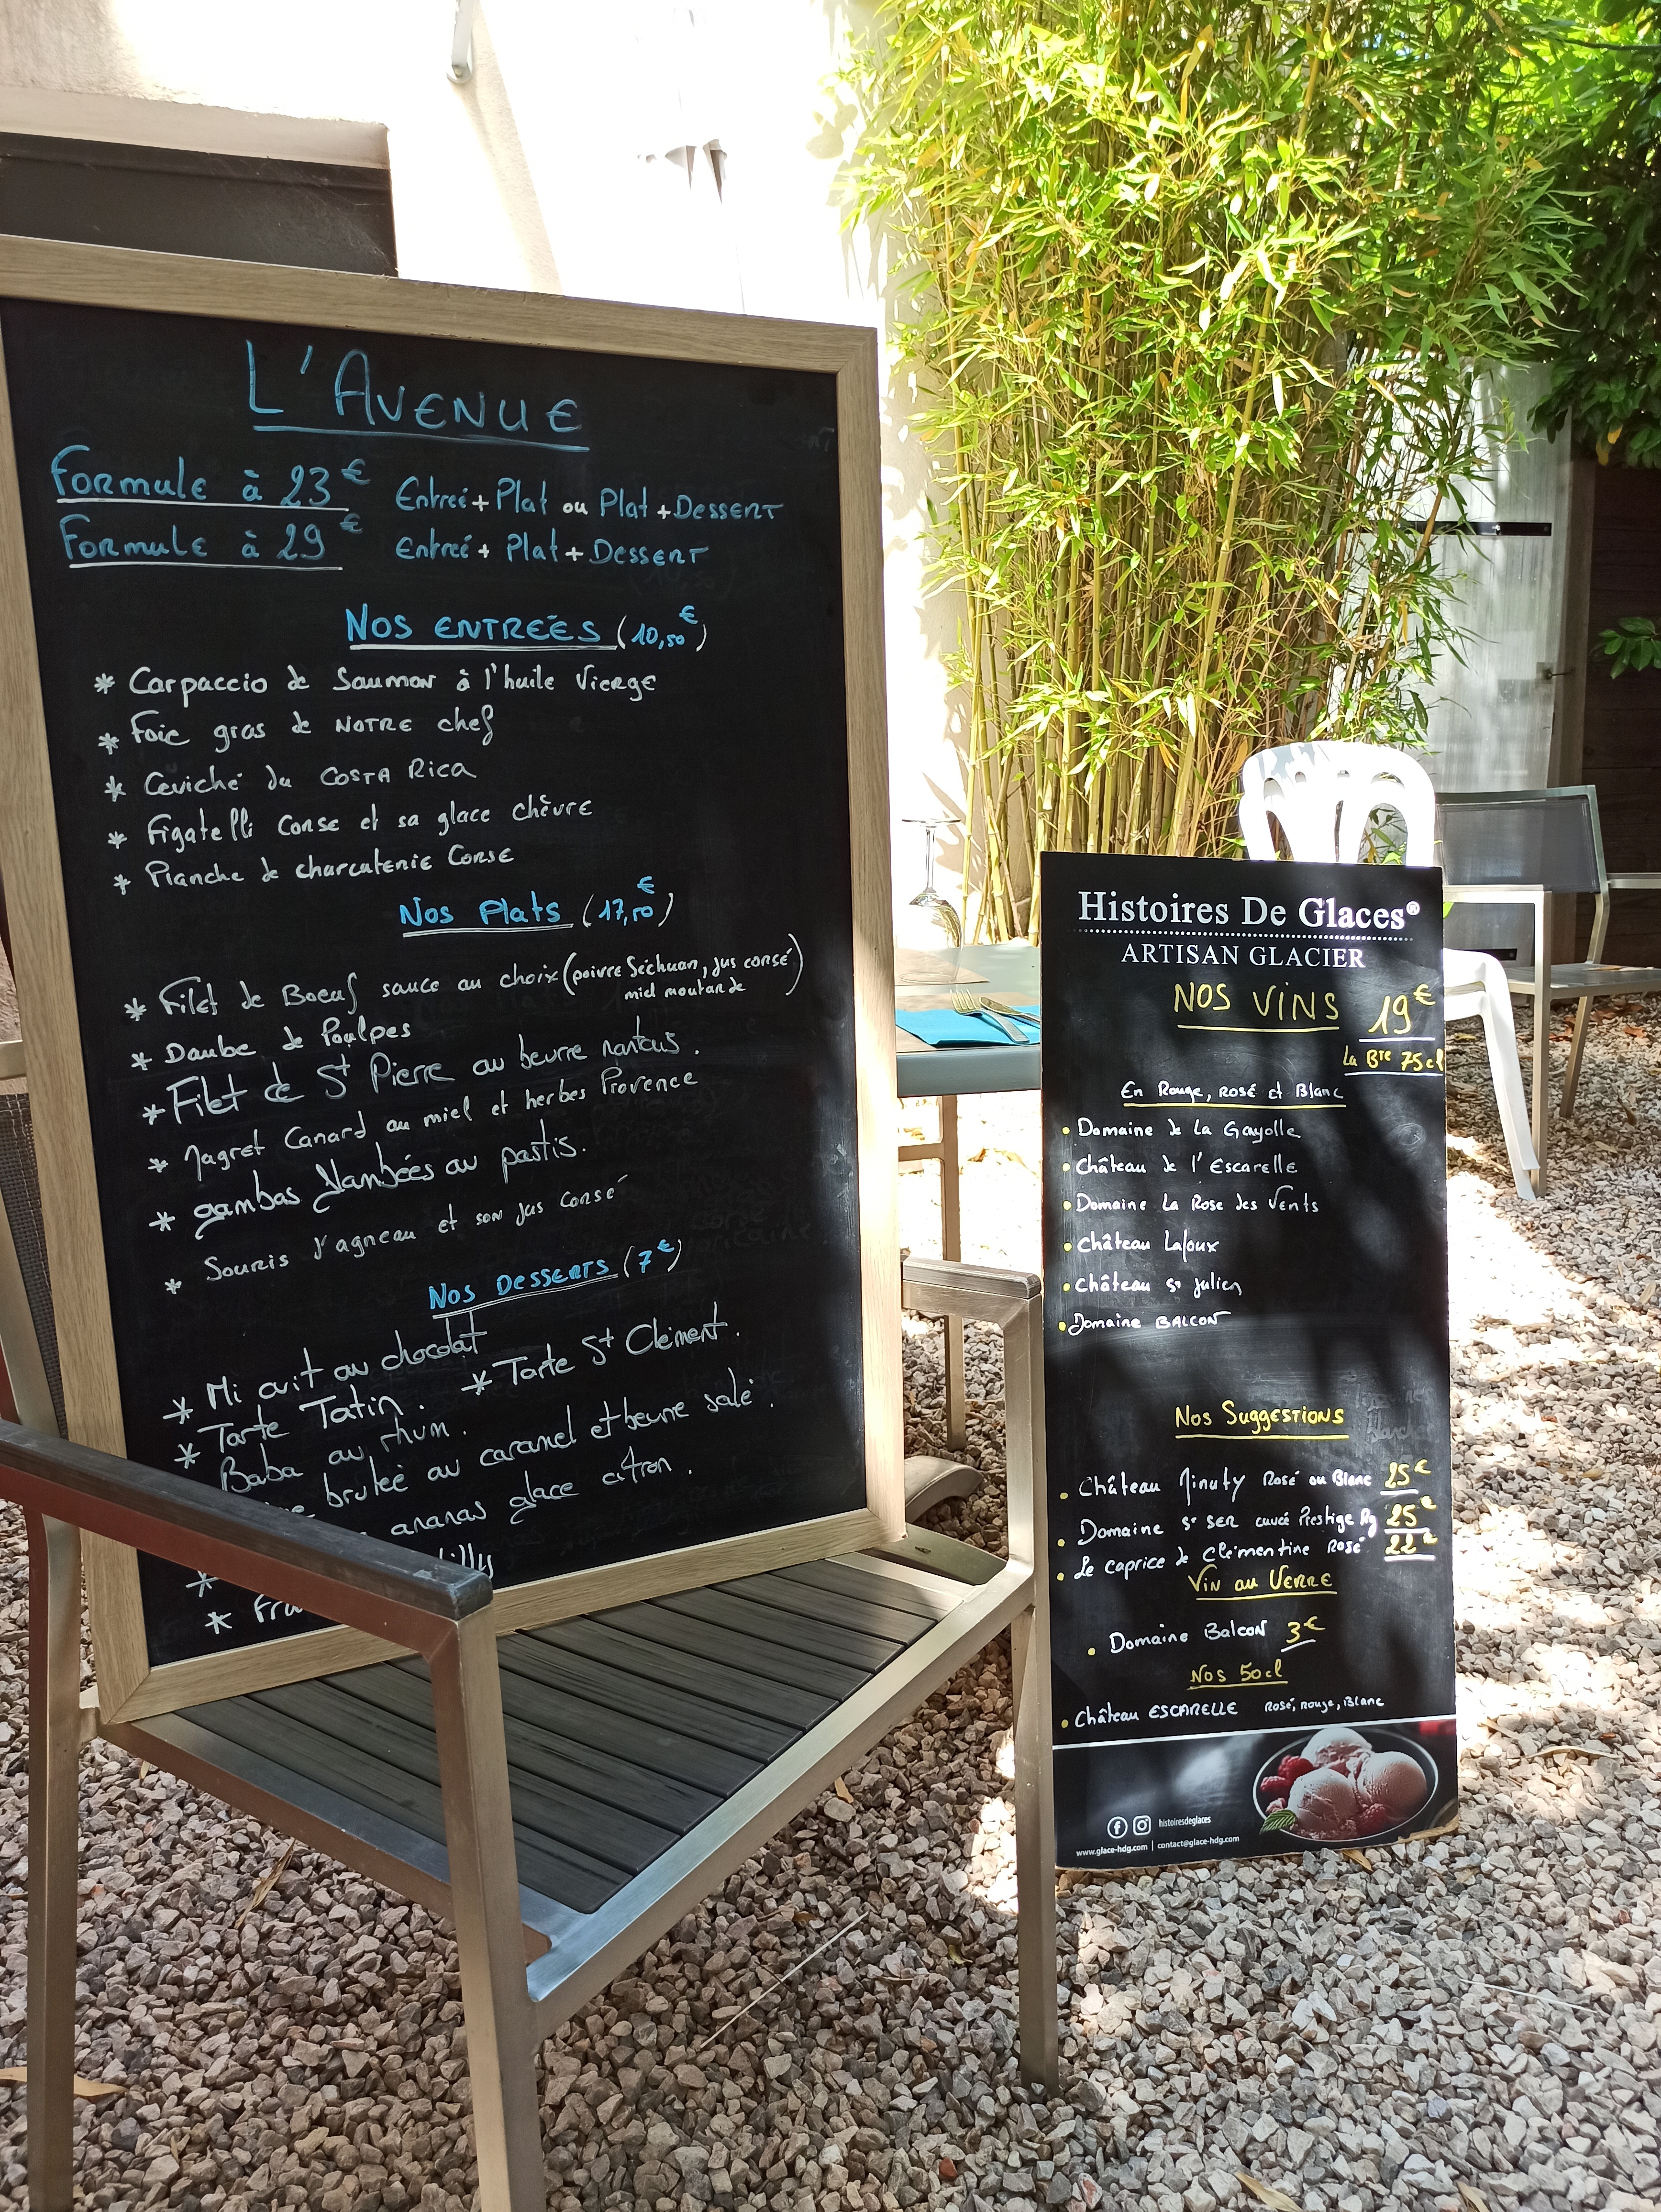 L'AVENUE
Formule à 23€ Entreé + Plat ou Plat + Dessert
Formule à 29€ Entreé + Plat + Dessert
Nos Entrées (10,50€)
* Carpaccio de Saumon à l'huile Vierge
* Foie gras de notre chef
* Ceviché du Costa Rica
* Figatelli Corse et sa glace chèvre
* Planche de charcuterie Corse
Nos Plats (17,50€)
* Filet de Boeuf sauce au choix (poivre Séchuan, jus corsé
miel moutarde)
* Daube de Poulpes
* Filet de St Pierre au beurre nantais.
* Magret Canard au miel et herbes Provence
* gambas flambées au pastis.
* Souris d'agneau et son jus corsé
Nos Desserts (7€)
* Mi cuit au chocolat
* Tarte Tatin. * Tarte St Clément.
Baba au rhum.
brulée au caramel et beurre salé.
ananas glace citron.
*
*
Histoires De Glaces®
ARTISAN GLACIER
NOS VINS 19€
La Bte 75cl
En Rouge, rosé et Blanc
• Domaine de la Gayolle
• Château de l'Escarelle
• Domaine La Rose des Vents
• Château Lafoux
• Château St Julien
• Domaine BALCON
Nos Suggestions
• Château Minuty Rosé ou Blanc 25€
• Domaine St SER cuvée Prestige Rg 25€
• Le caprice de Clémentine Rosé 22€
Vin au Verre
• Domaine Balcon 3€
Nos 50cl
• Château ESCARELLE Rosé, rouge, Blanc
histoiresdeglaces
www.glace-hdg.com | contact@glace-hdg.com